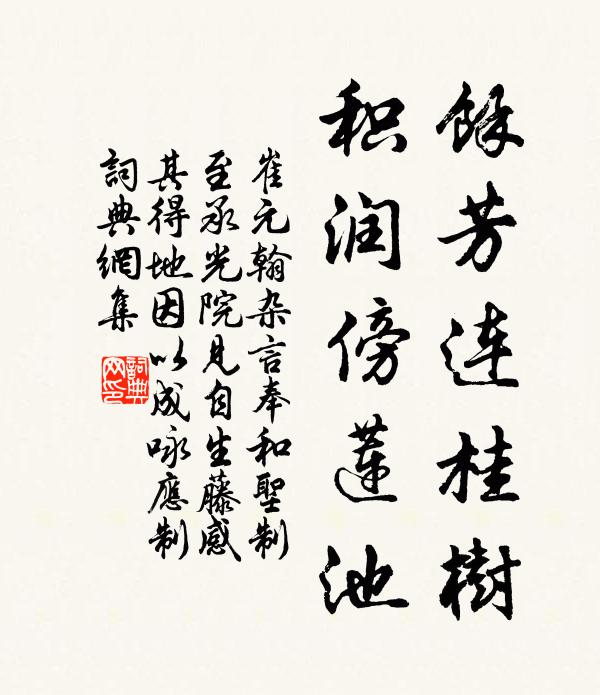 餘芳连桂樹
积润傍莲池
崔元翰杂言奉和聖制
至承光院见自生藤感
其得地因以成咏應制
詞典網集
詞典网印